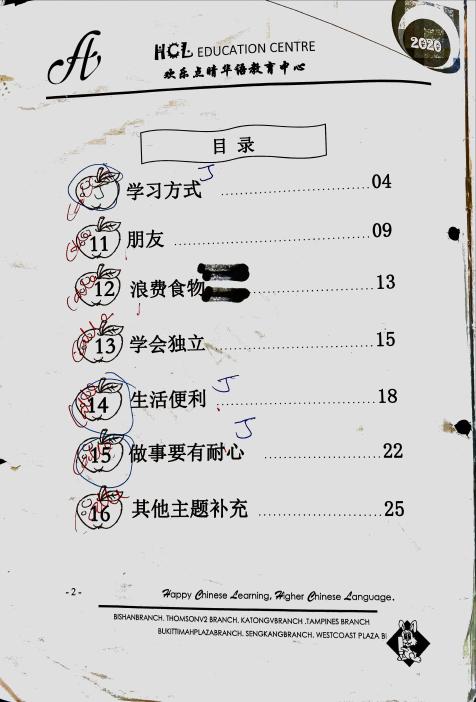 2020
HCL EDUCATION CENTRE
欢乐点晴华语教育中心
目录
学习方式 .................... 04
11 朋友 .................... 09
12 浪费食物 .................... 13
13 学会独立 .................... 15
14 生活便利 .................... 18
15 做事要有耐心 .................... 22
16 其他主题补充 .................... 25
- 2 -
Happy Chinese Learning, Higher Chinese Language.
BISHANBRANCH. THOMSONV2 BRANCH. KATONGVBRANCH .TAMPINES BRANCH
BUKITTIMAHPLAZABRANCH. SENGKANGBRANCH. WESTCOAST PLAZA